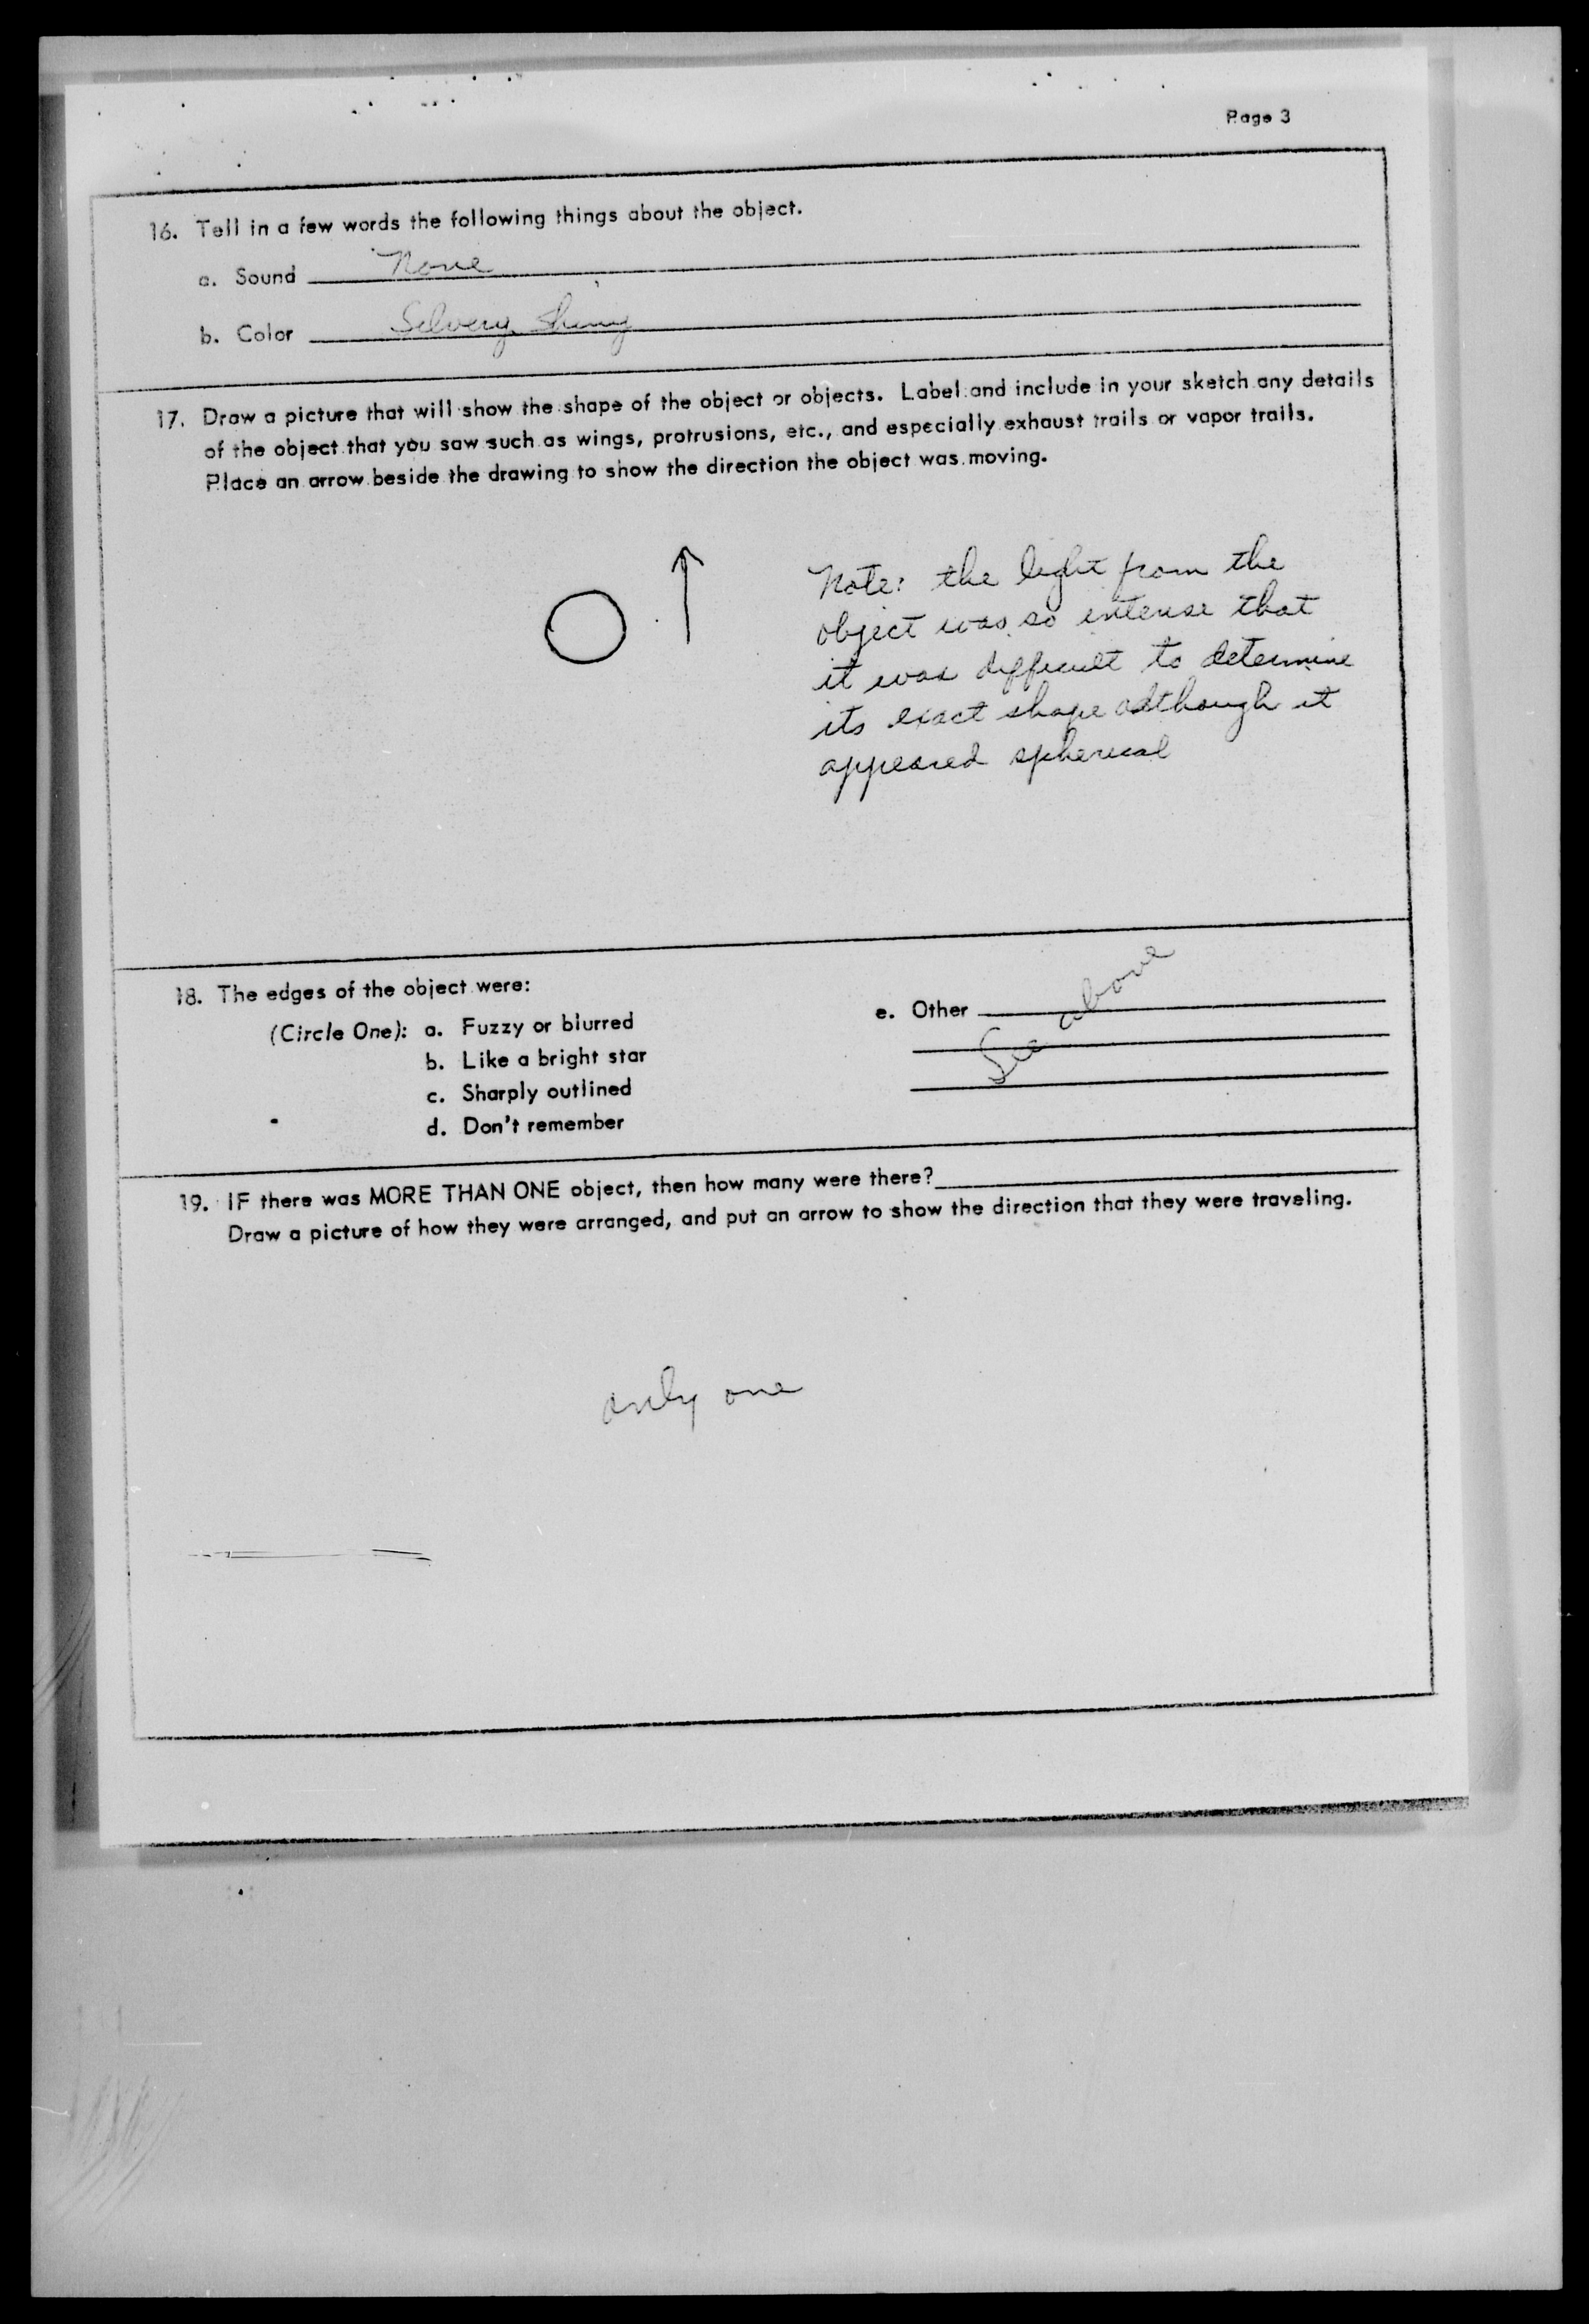 Page 3
16. Tell in a few words the following things about the object.
a. Sound None
b. Color Silvery Shiny
17. Draw a picture that will show the shape of the object or objects. Label and include in your sketch any details
of the object that you saw such as wings, protrusions, etc., and especially exhaust trails or vapor trails.
Place an arrow beside the drawing to show the direction the object was moving.
Note: the light from the
object was so intense that
it was difficult to determine
its exact shape although it
appeared spherical
18. The edges of the object were:
(Circle One): a. Fuzzy or blurred
b. Like a bright star
c. Sharply outlined
d. Don't remember
e. Other See above
19. IF there was MORE THAN ONE object, then how many were there?
Draw a picture of how they were arranged, and put an arrow to show the direction that they were traveling.
only one